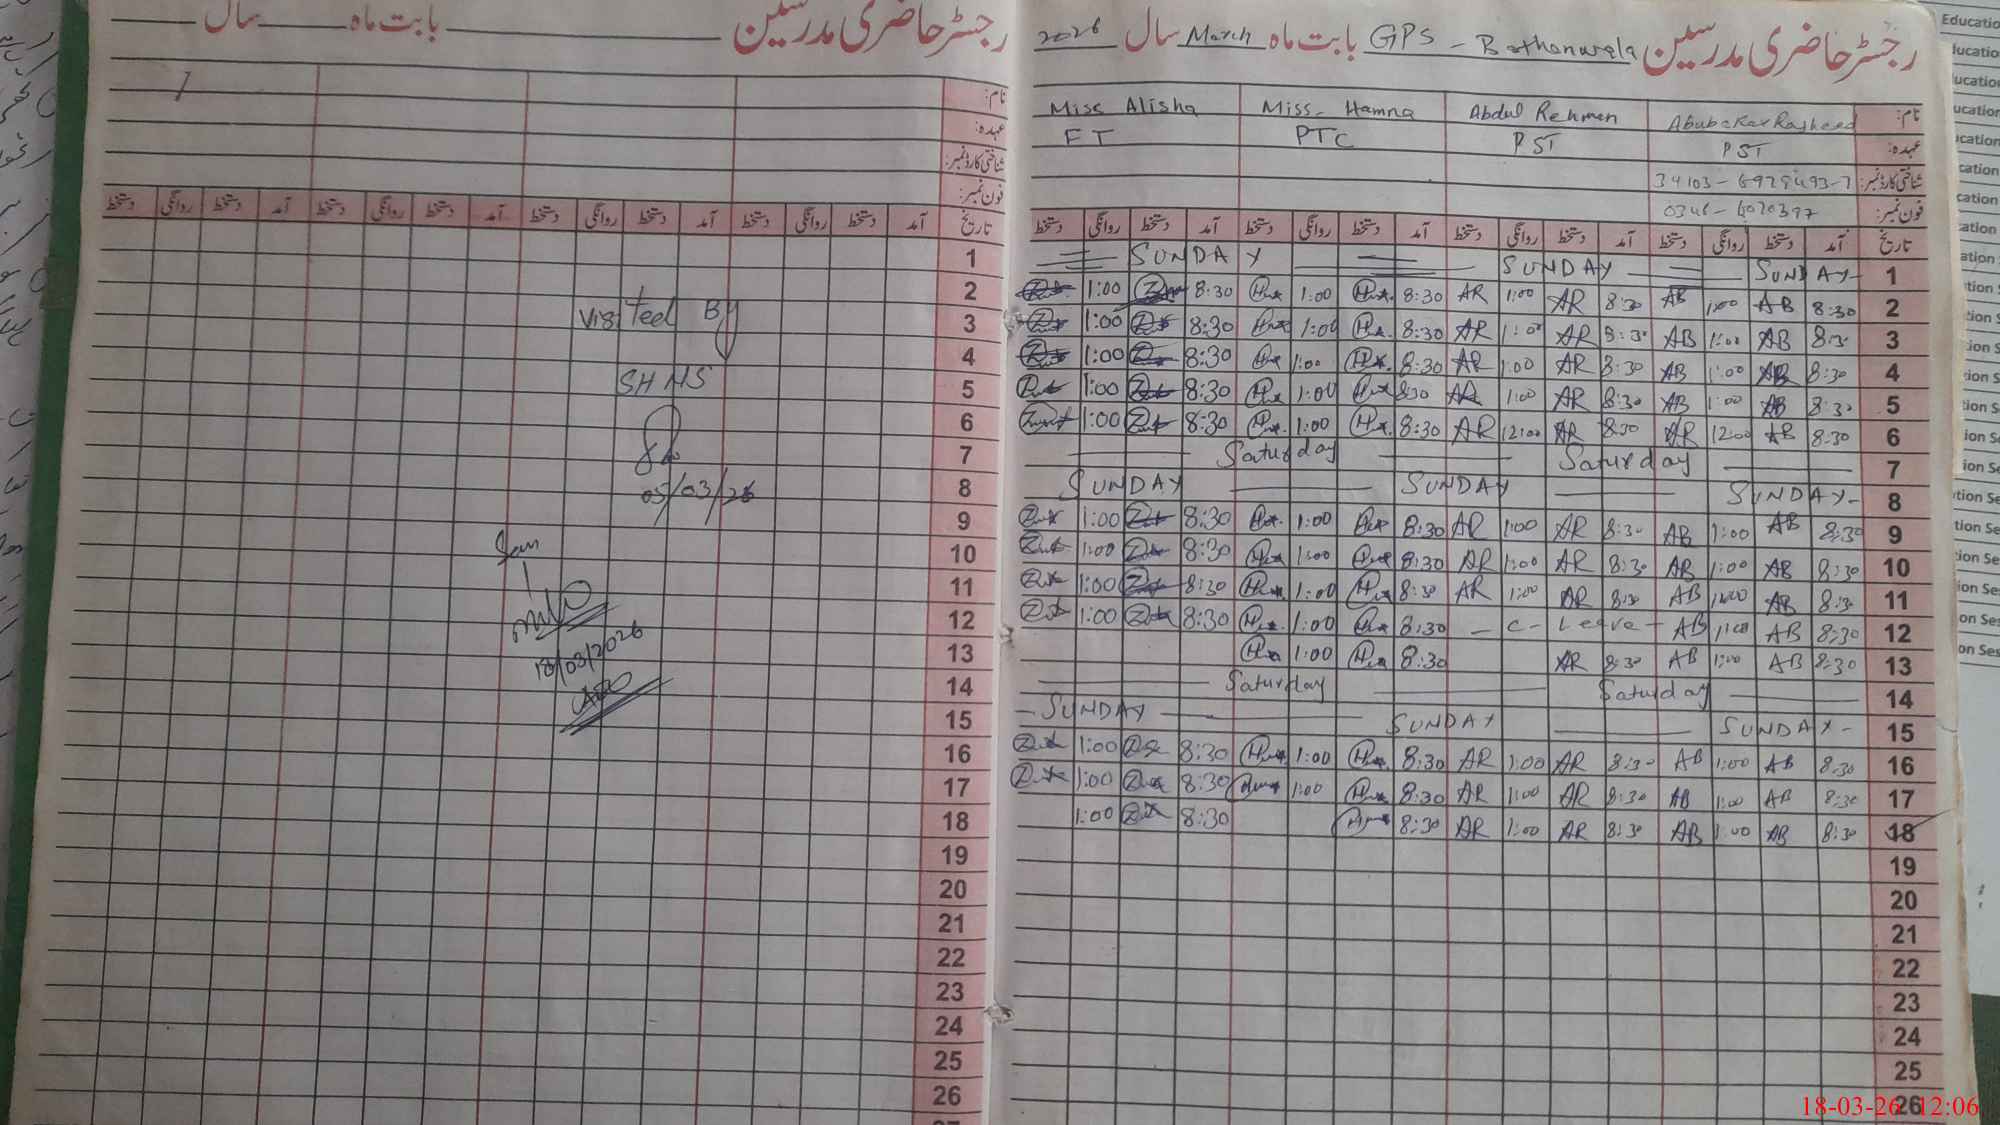 رجسٹر حاضری مدرسین ــــ بابت ماہ ــــ سال ــــ
نام:
عہدہ:
شناختی کارڈ نمبر:
فون نمبر:
تاریخ آمد دستخط روانگی دستخط آمد دستخط روانگی دستخط آمد دستخط روانگی دستخط آمد دستخط روانگی دستخط
1
2
3
4
5
6
7
8
9
10
11
12
13
14
15
16
17
18
19
20
21
22
23
24
25
26
Visited By
SHMS
05/03/26
18/03/2026
AEO
رجسٹر حاضری مدرسین GPS - Bathanwala بابت ماہ March سال 2026
نام: Abubakar Rasheed Abdul Rehman Miss Hamna Miss Alisha
عہدہ: PST PST PTC FT
شناختی کارڈ نمبر:
فون نمبر:
تاریخ آمد دستخط روانگی دستخط آمد دستخط روانگی دستخط آمد دستخط روانگی دستخط آمد دستخط روانگی دستخط
SUNDAY SUNDAY SUNDAY 1
1:00 8:30 1:00 8:30 AR 1:00 AR 8:30 AB 1:00 AB 8:30 2
1:00 8:30 1:00 8:30 AR 1:00 AR 8:30 AB 1:00 AB 8:30 3
1:00 8:30 1:00 8:30 AR 1:00 AR 8:30 AB 1:00 AB 8:30 4
1:00 8:30 1:00 8:30 AR 1:00 AR 8:30 AB 1:00 AB 8:30 5
1:00 8:30 1:00 8:30 AR 12:00 AR 8:30 AR 12:00 AB 8:30 6
Saturday Saturday 7
SUNDAY SUNDAY SUNDAY 8
1:00 8:30 1:00 8:30 AR 1:00 AR 8:30 AB 1:00 AB 8:30 9
1:00 8:30 1:00 8:30 AR 1:00 AR 8:30 AB 1:00 AB 8:30 10
1:00 8:30 1:00 8:30 AR 1:00 AR 8:30 AB 1:00 AB 8:30 11
1:00 8:30 1:00 8:30 - C - Leave - AB 1:00 AB 8:30 12
1:00 8:30 AR 8:30 AB 1:00 AB 8:30 13
Saturday Saturday 14
SUNDAY SUNDAY SUNDAY 15
1:00 8:30 1:00 8:30 AR 1:00 AR 8:30 AB 1:00 AB 8:30 16
1:00 8:30 1:00 8:30 AR 1:00 AR 8:30 AB 1:00 AB 8:30 17
1:00 8:30 8:30 AR 1:00 AR 8:30 AB 1:00 AB 8:30 18
19
20
21
22
23
24
25
26
18-03-26 12:06